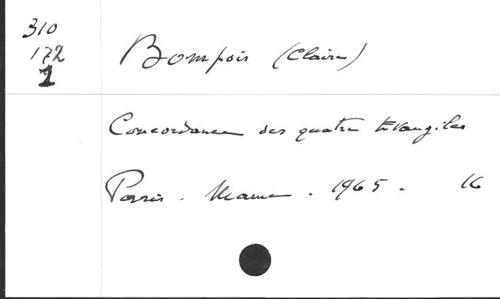 310
172
1
Bompois (Claire)
Concordance des quatre Evangiles
Paris. Mame. 1965. 16